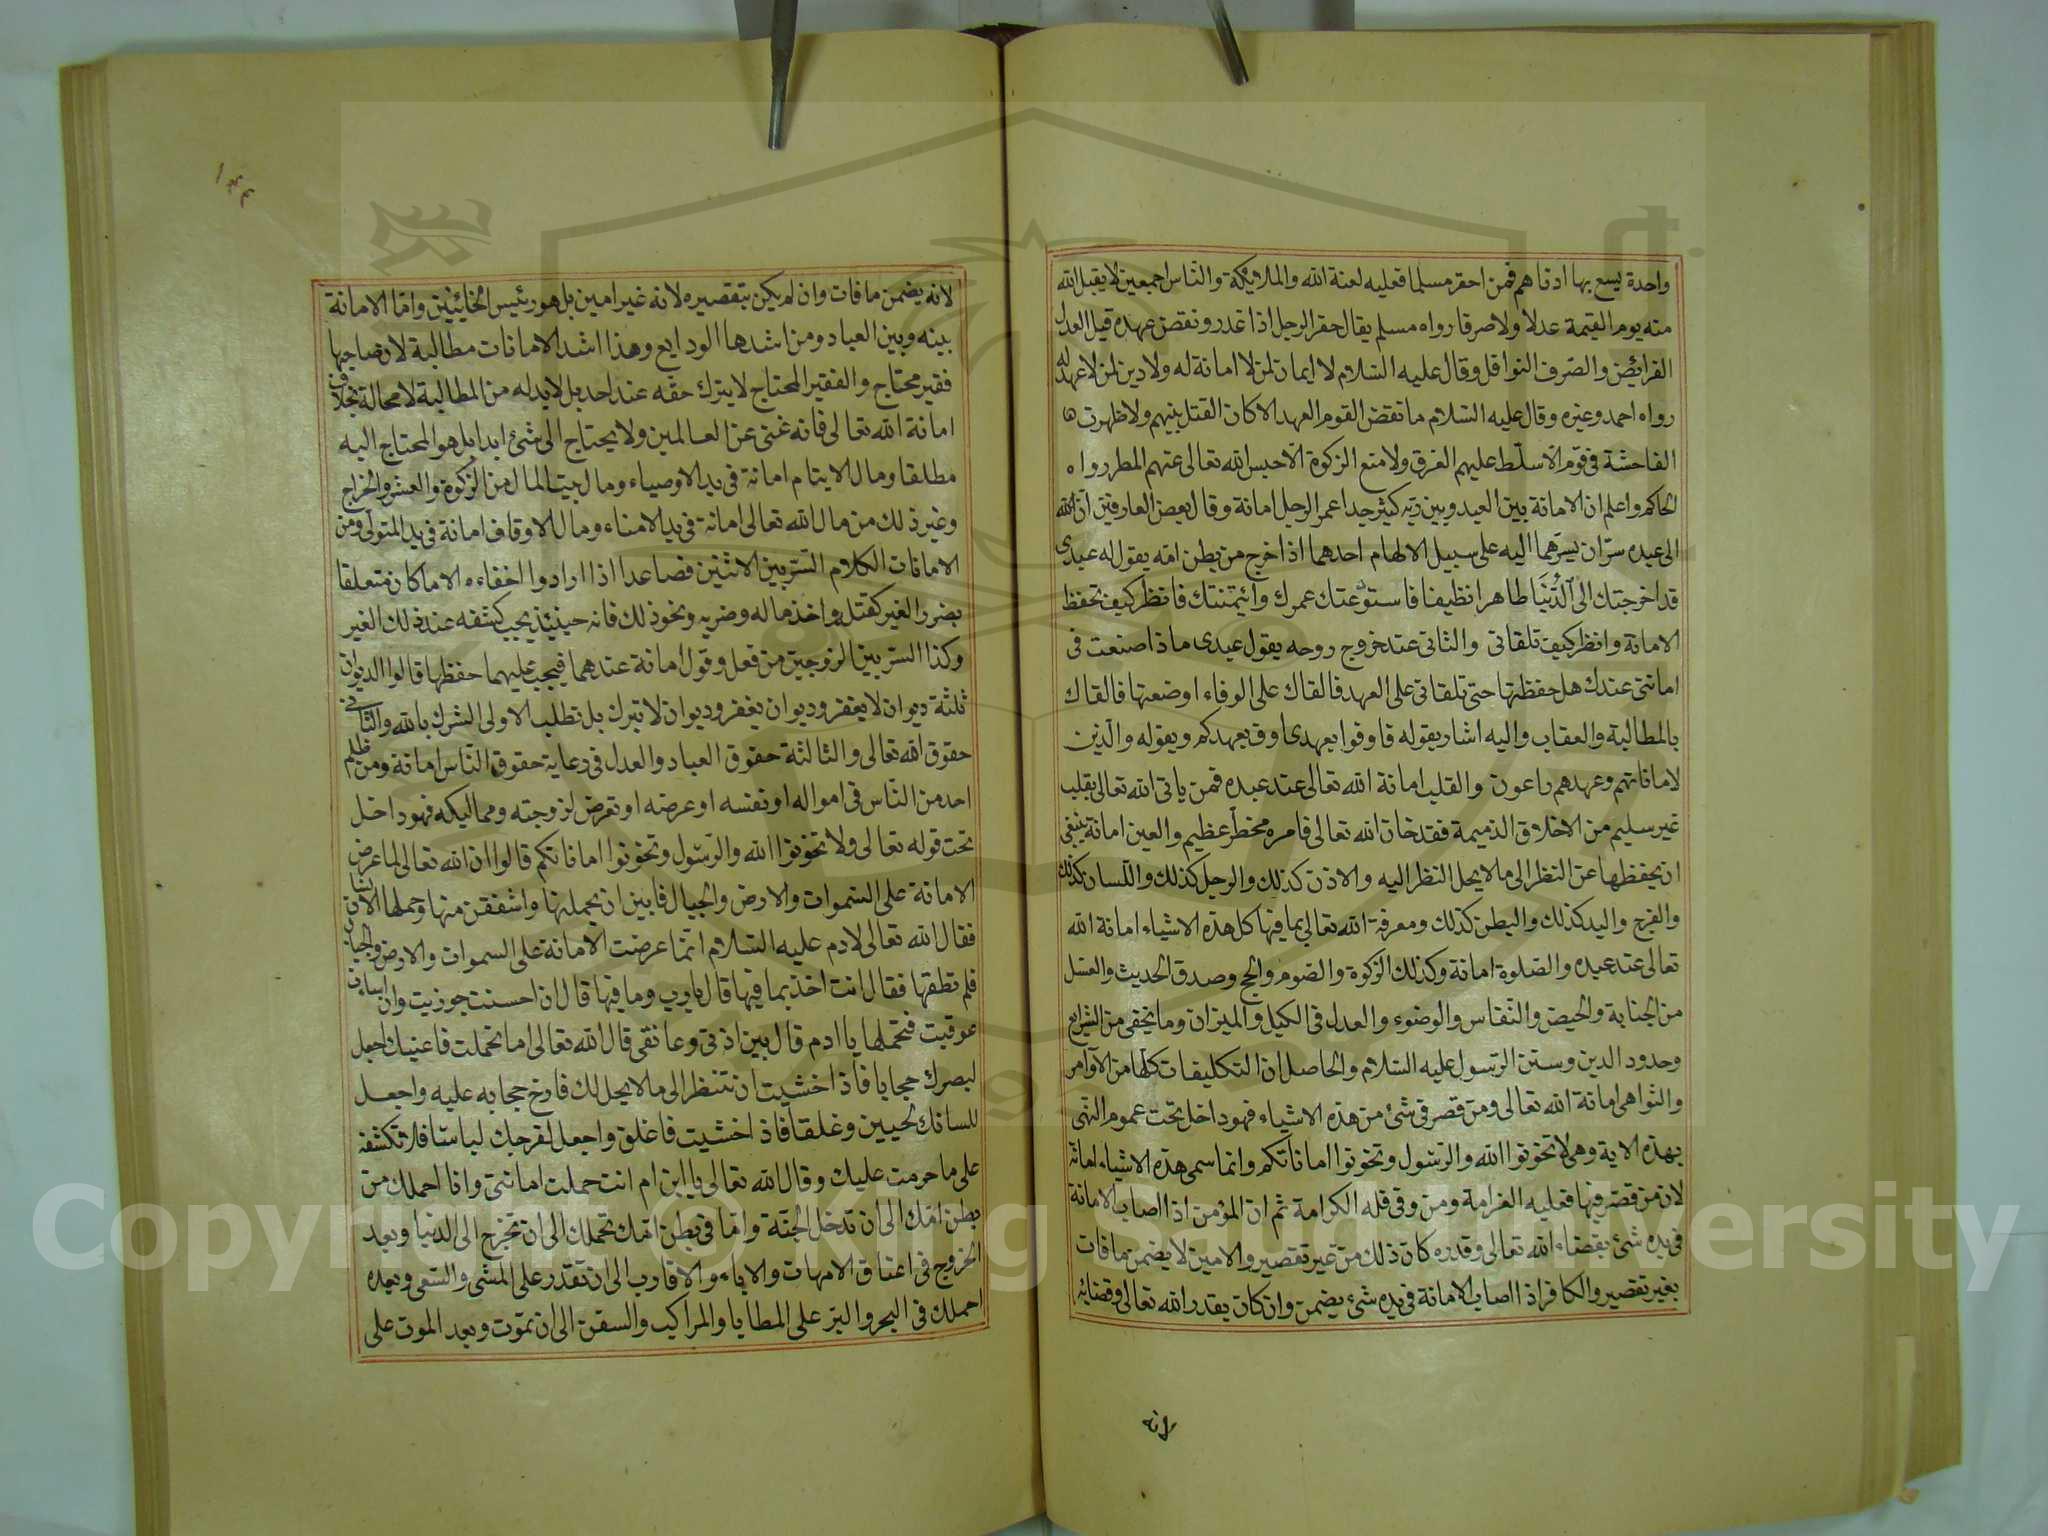 واحدة يسع بها ادناهم فمن احقر مسلما فعليه لعنة الله والملائكة والناس اجمعين لا يقبل الله
منه يوم القيمة عدلا ولا صرفا رواه مسلم يقال حقر الرجل اذا غدر ونقض عهده قيل العدل
الفرائض والصرف النوافل وقال عليه السلام لا ايمان لمن لا امانة له ولا دين لمن لا عهد له
رواه احمد وغيره وقال عليه السلام ما نقض القوم العهد الا كان القتل بينهم ولا ظهرت
الفاحشة فى قوم الا سلط عليهم الفرق ولا منع الزكوة الا حبس الله تعالى عنهم المطر رواه
الحاكم واعلم ان الامانة بين العبد وبين ربه كثير جدا عمر الرجل امانة وقال بعض العارفين ان الله
الى عبده سران يسرهما اليه على سبيل الالهام احدهما اذا خرج من بطن امه يقول له عبدى
قد اخرجتك الى الدنيا طاهرا نظيفا فاستودعتك عمرك وائتمنتك فانظر كيف تحفظ
الامانة وانظر كيف تلقانى والثانى عند خروج روحه يقول عبدى ماذا صنعت فى
امانتى عندك هل حفظتها حتى تلقانى على العهد فالقاك على الوفاء او ضعتها فالقاك
بالمطالبة والعقاب واليه اشار بقوله فاوفوا بعهدى اوف بعهدكم وبقوله والذين
لاماناتهم وعهدهم راعون والقلب امانة الله تعالى عند عبده فمن ياتى الله تعالى بقلب
غير سليم من الاخلاق الذميمة فقد خان الله تعالى فامره مخطر عظيم والعين امانة ينبغى
ان يحفظها عن النظر الى ما لا يحل النظر اليه والاذن كذلك والرجل كذلك واللسان كذلك
والفرج واليد كذلك والبطن كذلك ومعرفة الله تعالى بما فيها كل هذه الاشياء امانة الله
تعالى عند عبده والصلوة امانة وكذلك الزكوة والصوم والحج وصدق الحديث والغسل
من الجنابة والحيض والنفاس والوضوء والعدل فى الكيل والميزان وما يخفى من الشرايع
وحدود الدين وسنن الرسول عليه السلام والحاصل ان التكليفات كلها من الاوامر
والنواهى امانة الله تعالى ومن قصر فى شئ من هذه الاشياء فهو داخل تحت عموم النهى
بهذه الاية وهى لا تخونوا الله والرسول وتخونوا اماناتكم وانما سمى هذه الاشياء امانة
لان من قصر فيها فعليه الغرامة ومن وفى فله الكرامة ثم ان المؤمن اذا اصاب الامانة
فى يده شئ بقضاء الله تعالى وقدره كان ذلك من غير تقصير والامين لا يضمن بما فات
بغير تقصير والكافر اذا اصاب الامانة فى يده شئ يضمن وان كان بقدر الله تعالى وقضائه
لانه
١٤٤
لانه يضمن ما فات وان لم يكن بتقصيره لانه غير امين بل هو رئيس الخائنين واما الامانة
بينه وبين العباد ومن اشدها الودايع وهذا اشد الامانات مطالبة لان صاحبها
فقير محتاج والفقير المحتاج لا يترك حقه عند احد بل لا بد له من المطالبة لا محالة بخلاف
امانة الله تعالى فانه غنى عن العالمين ولا يحتاج الى شئ ابدا بل هو المحتاج اليه
مطلقا ومال الايتام امانة فى يد الاوصياء ومال بيت المال من الزكوة والعشر والخراج
وغير ذلك من مال الله تعالى امانة فى يد الامناء ومال الاوقاف امانة فى يد المتولى ومن
الامانات الكلام السر بين الاثنين فصاعدا اذا ارادوا اخفاءه الا ما كان متعلقا
بضرر الغير كقتله واخذ ماله وضربه ونحو ذلك فانه حينئذ يجب كشفه عند ذلك الغير
وكذا السر بين الزوجين من فعل وقول امانة عندهما فيجب عليهما حفظها قالوا الديوان
ثلثة ديوان لا يغفر وديوان يغفر وديوان لا يترك بل تطلب الاولى الشرك بالله والثانى
حقوق الله تعالى والثالثة حقوق العباد والعدل فى رعاية حقوق الناس امانة ومن ظلم
احد من الناس فى امواله او نفسه او عرضه او تعرض لزوجته ومماليكه فهو داخل
تحت قوله تعالى ولا تخونوا الله والرسول وتخونوا اماناتكم قالوا ان الله تعالى لما عرض
الامانة على السموات والارض والجبال فابين ان يحملنها واشفقن منها وحملها الانسان
فقال الله تعالى لادم عليه السلام انما عرضت الامانة على السموات والارض والجبال
فلم تطقها فقال انت اخذ بما فيها قال يا رب وما فيها قال ان احسنت جوزيت وان اساءت
عوقبت فتحملها يا ادم قال بين اذنى وعاتقى قال الله تعالى اما تحملت فاعنيك اجعل
لبصرك حجابا فاذا خشيت ان تنظر الى ما لا يحل لك فارخ حجابه عليه واجعل
للسانك لحيين وغلقا فاذا خشيت فاغلق واجعل لفرجك لباسا فلا تكشفه
على ما حرمت عليك وقال الله تعالى يا ابن ام انت حملت امانتى وانا احملك من
بطن امك الى ان تدخل الجنة واما فى بطن امك تحملك الى ان تخرج الى الدنيا وبعد
الخروج فى اعناق الامهات والاباء والاقارب الى ان تقدر على المشى والسعى وبعده
احملك فى البحر والبر على المطايا والمراكب والسفن الى ان تموت وبعد الموت على
Copyright © King Saud University